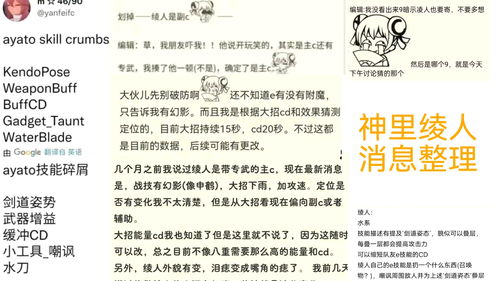 m☆ 46/90
@yanfeifc
ayato skill crumbs
KendoPose
WeaponBuff
BuffCD
Gadget_Taunt
WaterBlade
由 Google 翻译自 英语
ayato技能碎屑
剑道姿势
武器增益
缓冲CD
小工具_嘲讽
水刀
划掉——绫人是副c
编辑：草，我朋友吓我！！他说开玩笑的，其实是主c还有
专武，我揍了他一顿(不是)，确定了是主c
大伙儿先别破防啊
还不知道e有没有附魔，
只告诉我有幻影。而且我是根据大招cd和效果猜测
定位的，目前大招持续15秒，cd20秒。不过这都
是目前的数据，后续可能有更改。
几个月之前我说过绫人是带专武的主c，现在最新消息
是，战技有幻影(像申鹤)，大招下雨，加攻速。定位是
否有变化我不太清楚，但是从大招看现在偏向副c或者
辅助。
大招能量cd我也知道了但是这里就不说了，因为这随时
可以改，总之目前不像八重需要那么高的能量和cd。
另外，绫人外貌有变，泪痣变成嘴角的痣了。 我前几天
编辑:我没看出来9暗示凌人也要寄，不要多想
然后是哪个9，就是今天
下午讨论猜的那个
神里绫人
消息整理
绫人：
水系
技能描述有提及‘剑道姿态’，貌似可以叠层，
每叠一层都会提高攻击力
可以缩短队友e技能的CD
绫人自己的e技能是扔一个什么东西(召唤
物？)，嘲讽周围敌人并为上述‘剑道姿态’叠层